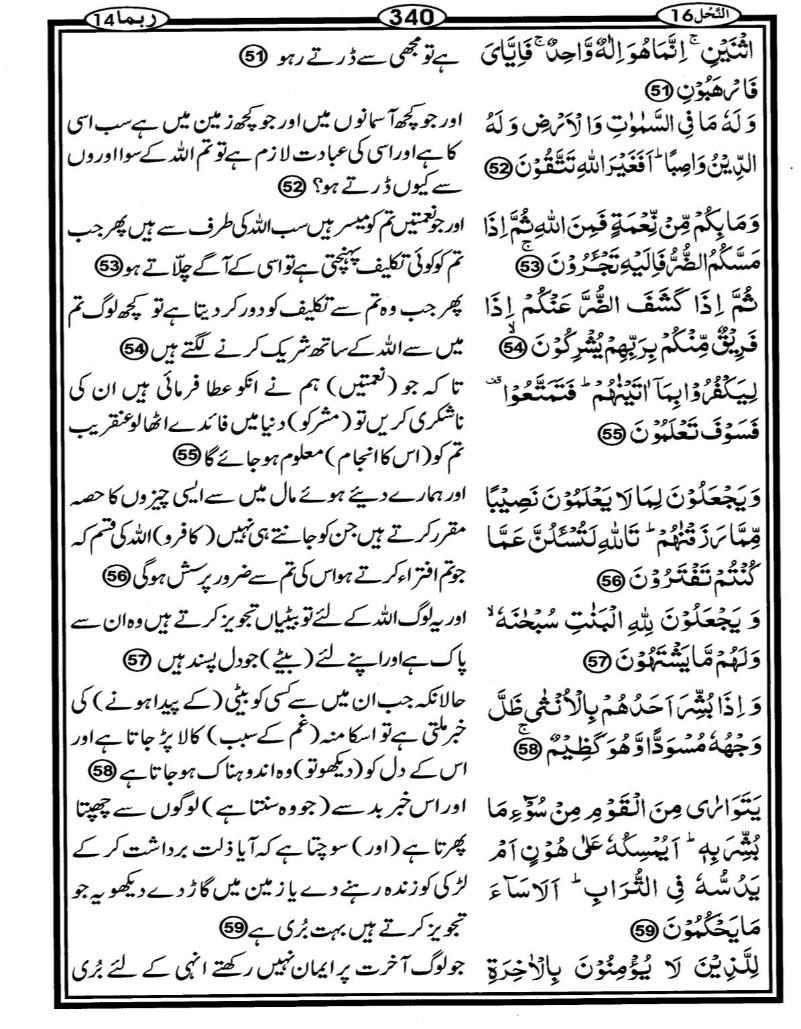 النَّحْل 16
340
ربما 14
اثْنَيْنِ ۚ اِنَّمَا هُوَ اِلٰهٌ وَّاحِدٌ ۚ فَاِيَّايَ
فَارْهَبُوْنِ 51
وَلَهٗ مَا فِي السَّمٰوٰتِ وَالْاَرْضِ وَلَهُ
الدِّيْنُ وَاصِبًا ؕ اَفَغَيْرَ اللّٰهِ تَتَّقُوْنَ 52
وَمَا بِكُمْ مِّنْ نِّعْمَةٍ فَمِنَ اللّٰهِ ثُمَّ اِذَا
مَسَّكُمُ الضُّرُّ فَاِلَيْهِ تَجْـَٔرُوْنَ ۚ 53
ثُمَّ اِذَا كَشَفَ الضُّرَّ عَنْكُمْ اِذَا
فَرِيْقٌ مِّنْكُمْ بِرَبِّهِمْ يُشْرِكُوْنَ ۙ 54
لِيَكْفُرُوْا بِمَاۤ اٰتَيْنٰهُمْ ؕ فَتَمَتَّعُوْا ۟
فَسَوْفَ تَعْلَمُوْنَ 55
وَيَجْعَلُوْنَ لِمَا لَا يَعْلَمُوْنَ نَصِيْبًا
مِّمَّا رَزَقْنٰهُمْ ؕ تَاللّٰهِ لَتُسْـَٔلُنَّ عَمَّا
كُنْتُمْ تَفْتَرُوْنَ 56
وَيَجْعَلُوْنَ لِلّٰهِ الْبَنٰتِ سُبْحٰنَهٗ ۙ
وَلَهُمْ مَّا يَشْتَهُوْنَ 57
وَاِذَا بُشِّرَ اَحَدُهُمْ بِالْاُنْثٰى ظَلَّ
وَجْهُهٗ مُسْوَدًّا وَّهُوَ كَظِيْمٌ ۚ 58
يَتَوَارٰى مِنَ الْقَوْمِ مِنْ سُوْٓءِ مَا
بُشِّرَ بِهٖ ؕ اَيُمْسِكُهٗ عَلٰى هُوْنٍ اَمْ
يَدُسُّهٗ فِي التُّرَابِ ؕ اَلَا سَآءَ
مَا يَحْكُمُوْنَ 59
لِلَّذِيْنَ لَا يُؤْمِنُوْنَ بِالْاٰخِرَةِ
ہے تو مجھی سے ڈرتے رہو 51
اور جو کچھ آسمانوں میں اور جو کچھ زمین میں ہے سب اسی
کا ہے اور اسی کی عبادت لازم ہے تو تم اللہ کے سوا اوروں
سے کیوں ڈرتے ہو؟ 52
اور جو نعمتیں تم کو میسر ہیں سب اللہ کی طرف سے ہیں پھر جب
تم کو کوئی تکلیف پہنچتی ہے تو اسی کے آگے چلّاتے ہو 53
پھر جب وہ تم سے تکلیف کو دور کر دیتا ہے تو کچھ لوگ تم
میں سے اللہ کے ساتھ شریک کرنے لگتے ہیں 54
تا کہ جو (نعمتیں) ہم نے انکو عطا فرمائی ہیں ان کی
ناشکری کریں تو (مشرکو) دنیا میں فائدے اٹھا لو عنقریب
تم کو (اس کا انجام) معلوم ہو جائے گا 55
اور ہمارے دیئے ہوئے مال میں سے ایسی چیزوں کا حصہ
مقرر کرتے ہیں جن کو جانتے ہی نہیں (کافرو) اللہ کی قسم کہ
جو تم افتراء کرتے ہو اس کی تم سے ضرور پرسش ہوگی 56
اور یہ لوگ اللہ کے لئے تو بیٹیاں تجویز کرتے ہیں وہ ان سے
پاک ہے اور اپنے لئے (بیٹے) جو دل پسند ہیں 57
حالانکہ جب ان میں سے کسی کو بیٹی (کے پیدا ہونے) کی
خبر ملتی ہے تو اسکا منہ (غم کے سبب) کالا پڑ جاتا ہے اور
اس کے دل کو (دیکھو تو) وہ اندوہناک ہو جاتا ہے 58
اور اس خبر بد سے (جو وہ سنتا ہے) لوگوں سے چھپتا
پھرتا ہے (اور) سوچتا ہے کہ آیا ذلت برداشت کر کے
لڑکی کو زندہ رہنے دے یا زمین میں گاڑ دے دیکھو یہ جو
تجویز کرتے ہیں بہت بُری ہے 59
جو لوگ آخرت پر ایمان نہیں رکھتے انہی کے لئے بُری